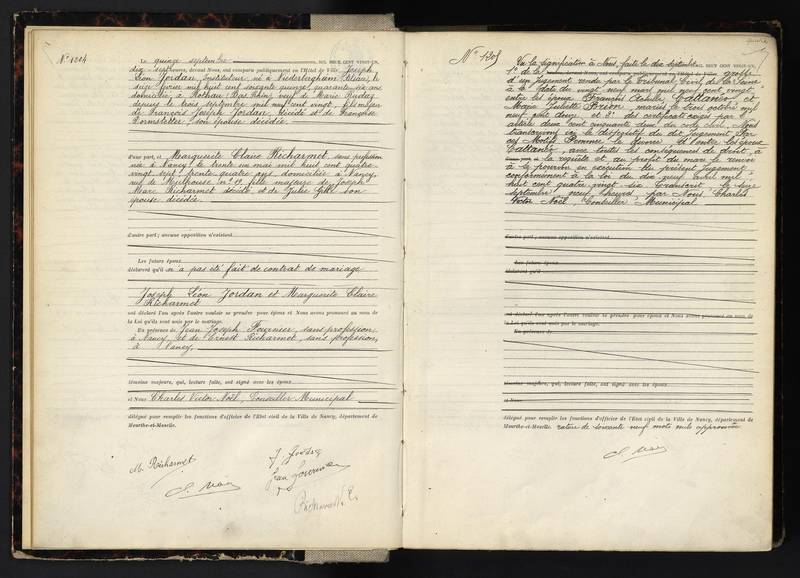 N° 1204
Le quinze septembre MIL NEUF CENT VINGT-UN,
dix-sept heures, devant Nous, ont comparu publiquement en l'Hôtel de Ville Joseph
Léon Jordan, Instituteur, né à Niederbergheim
seize février mil huit cent soixante quinze, quarante six ans
domicilié à Rothau, Bas Rhin, veuf de Marie
depuis le trois septembre mil neuf cent vingt, fils majeur
de François Joseph Jordan, décédé et de Françoise
son épouse décédée.
d'une part, et Marguerite Claire Richarmet sans profession
née à Nancy, le trente un mai mil huit cent quatre
vingt sept, trente quatre ans, domiciliée à Nancy,
rue de Mulhouse n° 19, fille majeure de Joseph
Marc Richarmet décédé et de Julie Gill son
épouse décédée.
d'autre part; aucune opposition n'existant
Les futurs époux
déclarent qu'il n'a pas été fait de contrat de mariage
Joseph Léon Jordan et Marguerite Claire
Richarmet
ont déclaré l'un après l'autre vouloir se prendre pour époux et Nous avons prononcé au nom de
la Loi qu'ils sont unis par le mariage.
En présence de Jean Joseph Fournier, sans profession,
à Nancy, et de Ernest Richarmet, sans profession,
à Nancy,
témoins majeurs, qui, lecture faite, ont signé avec les époux
et Nous Charles Victor Noël, Conseiller Municipal
délégué pour remplir les fonctions d'officier de l'Etat civil de la Ville de Nancy, département de
Meurthe-et-Moselle.
M. Richarmet
C. Noël
N° 1205
Vu la signification à Nous, faite le dix septembre MIL NEUF CENT VINGT-UN,
1° de la grosse
d'un jugement rendu par le Tribunal Civil de la Seine
à la date du vingt neuf mars mil neuf cent vingt,
entre les époux François Achille Cattanéo et
Marie Juliette mariés le trois octobre mil
neuf cent douze et 2° des certificats exigés par l'
article deux cent cinquante deux du code civil, Nous
transcrivons ici le dispositif du dit jugement Par
ces Motifs Prononce le divorce d'entre les époux
Cattanéo, avec toutes les conséquences de droit, à
la requête et au profit du mari le renvoie
à le pourvoir en exécution du présent jugement
conformément à la loi du dix huit avril mil
huit cent quatre vingt six Transcrit le seize
septembre neuf heures par Nous, Charles
Victor Noël Conseiller Municipal
d'autre part; aucune opposition n'existant
Les futurs époux
déclarent qu'il
ont déclaré l'un après l'autre vouloir se prendre pour époux et Nous avons prononcé au nom de
la Loi qu'ils sont unis par le mariage.
En présence de
témoins majeurs, qui, lecture faite, ont signé avec les époux
et Nous
délégué pour remplir les fonctions d'officier de l'Etat civil de la Ville de Nancy, département de
Meurthe-et-Moselle. rature de soixante neuf mots nuls approuvée
C. Noël